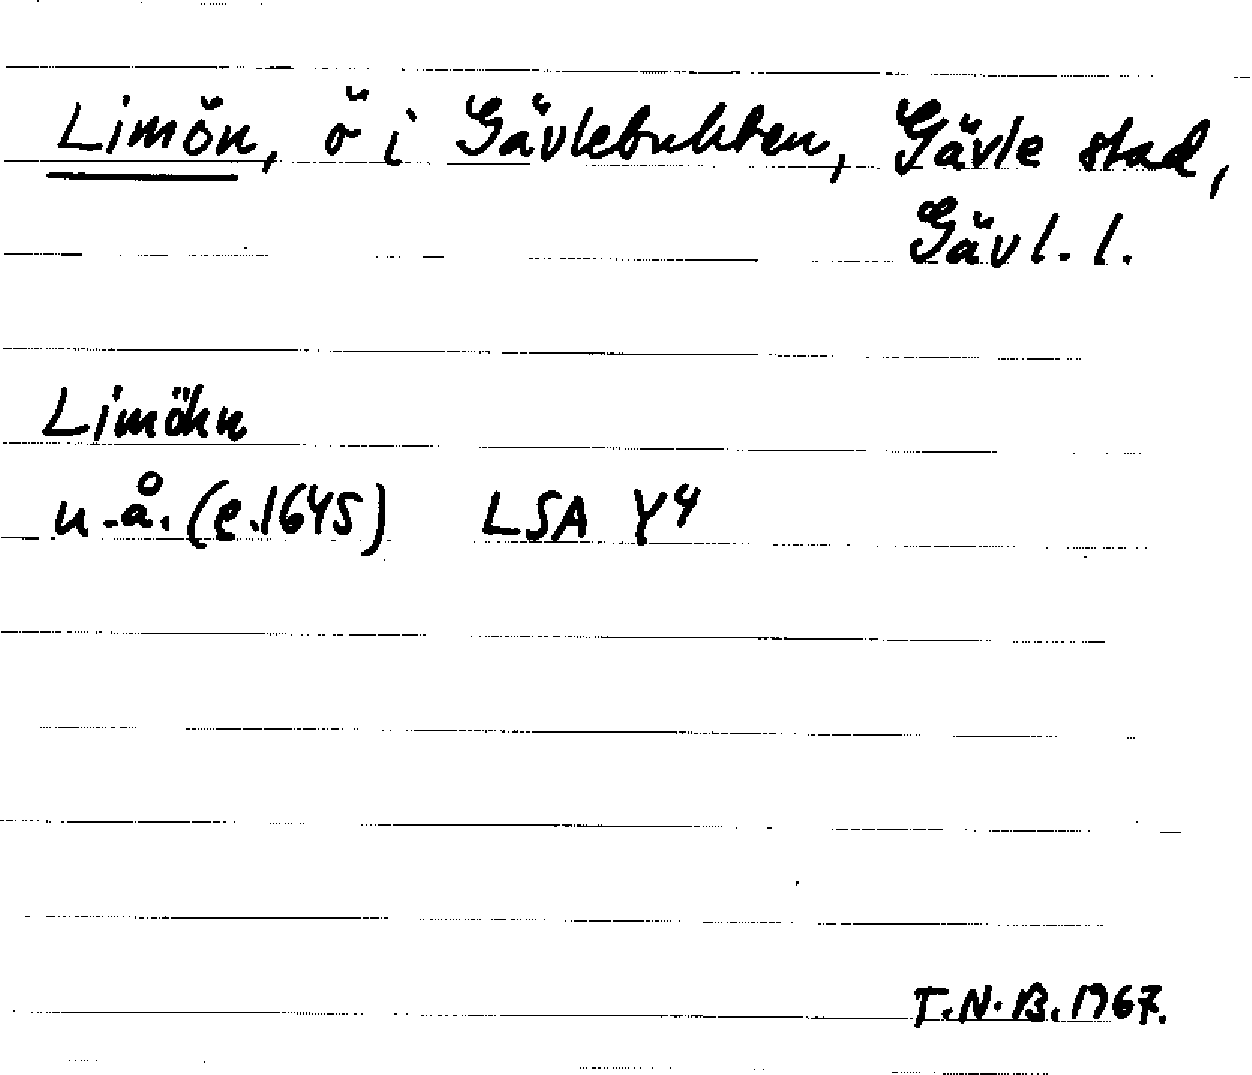 Limön, ö i Gävlebukten, Gävle stad,
Gävl. l.
Limöhn
u.å. (e.1645) LSA Y4
T.N.B. 1967.